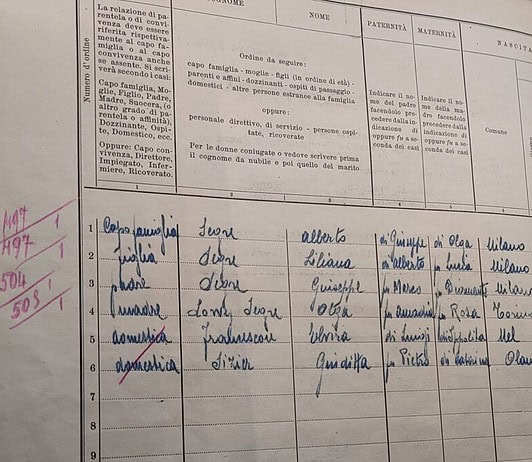 Numero d'ordine
La relazione di pa-
rentela o di convi-
venza deve essere
riferita rispettiva-
mente al capo fa-
miglia o al capo
convivenza anche
se assente. Si scri-
verà secondo i casi:
Capo famiglia, Mo-
glie, Figlio, Padre,
Madre, Suocera, (o
altro grado di pa-
rentela o affinità),
Dozzinante, Ospi-
te, Domestico, ecc.
Oppure: Capo con-
vivenza, Direttore,
Impiegato, Infer-
miere, Ricoverato.
COGNOME
NOME
Ordine da seguire:
capo famiglia - moglie - figli (in ordine di età) -
parenti e affini - dozzinanti - ospiti di passaggio -
domestici - altre persone estranee alla famiglia
oppure:
personale direttivo, di servizio - persone ospi-
tate, ricoverate
Per le donne coniugate o vedove scrivere prima
il cognome da nubile e poi quello del marito
PATERNITÀ
Indicare il no-
me del padre
facendolo pre-
cedere dalla in-
dicazione di
oppure fu a se-
conda dei casi
MATERNITÀ
Indicare il no-
me della ma-
dre facendolo
precedere dalla
indicazione di
oppure fu a se-
conda dei casi
NASCITA
Comune
1 2 3 4 5 6
497 1
497 1
504 1
505 1
1 Capo famiglia Segre Alberto di Giuseppe di Olga Milano
2 figlia Segre Liliana di Alberto fu Lucia Milano
3 padre Segre Giuseppe fu Marco fu Diamante Milano
4 madre Segre Olga fu Amadio fu Rosa Torino
5 domestica Elvira di Luigi di Ippolita Mel
6 domestica Giuditta fu Pietro di Caterina
7
8
9